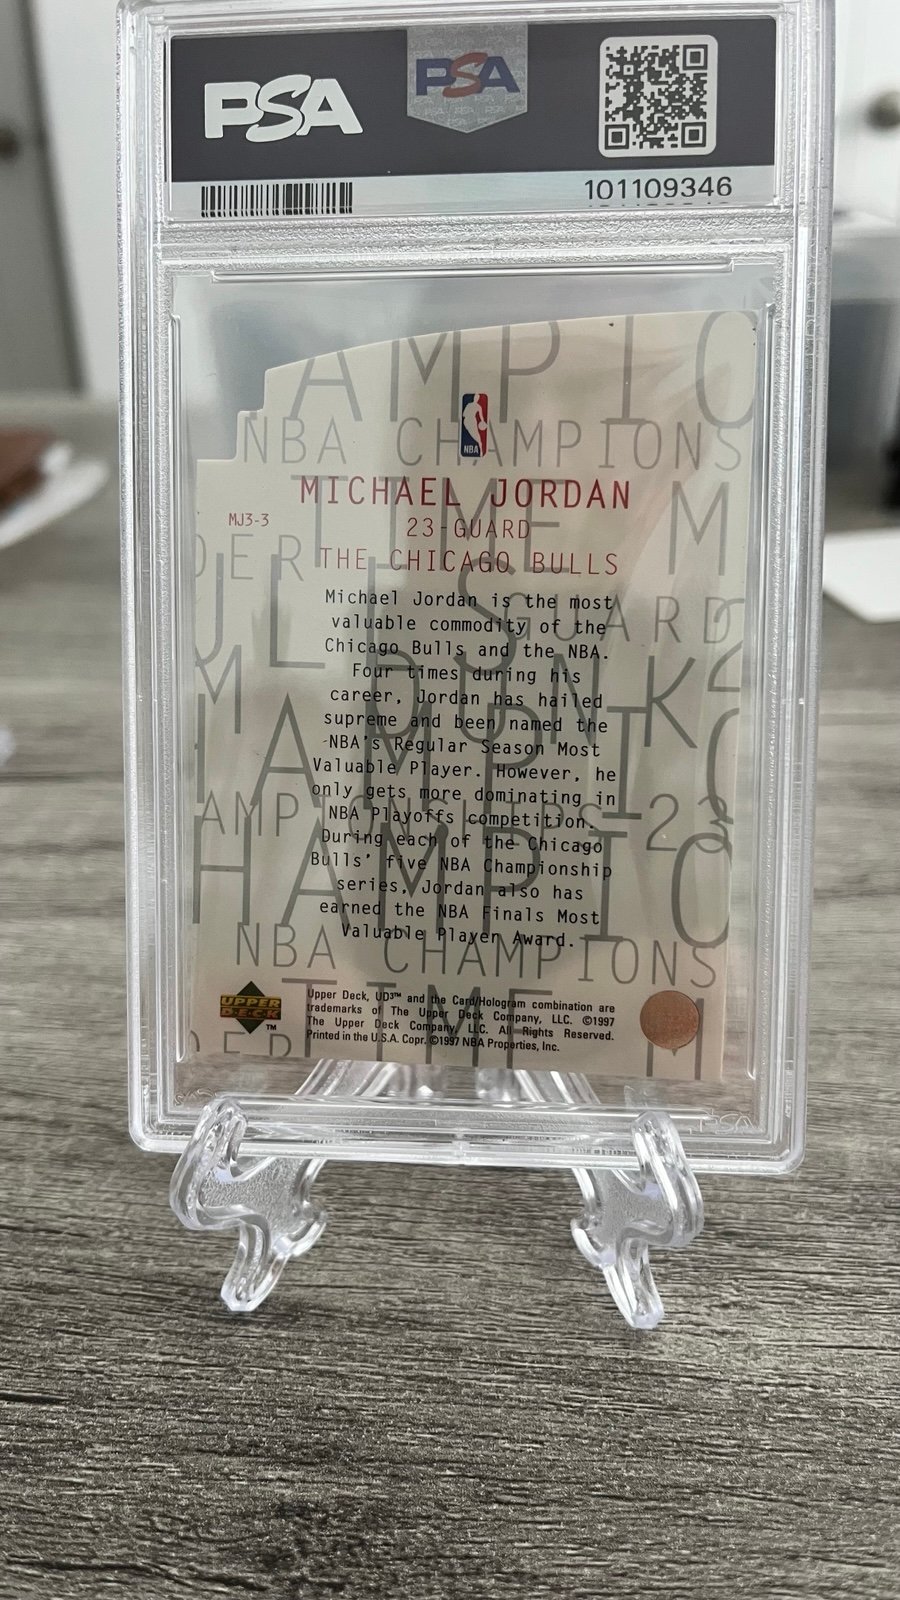 PSA
PSA
101109346
AMPIO
NBA CHAMPIONS
NBA
MICHAEL JORDAN
TIME M
MJ3-3
23-GUARD
DER
THE CHICAGO BULLS
Michael Jordan is the most
valuable commodity of the
GUARD
Chicago Bulls and the NBA.
Four times during his
career, Jordan has hailed
supreme and been named the
NBA's Regular Season Most
Valuable Player. However, he
only gets more dominating in
NBA Playoffs competition.
AMPIONSHIPS 23
During each of the Chicago
Bulls' five NBA Championship
series, Jordan also has
HAMPIO
earned the NBA Finals Most
Valuable Player Award.
NBA CHAMPIONS
TIME M
DER
UPPER
DECK
TM
Upper Deck, UD3™ and the Card/Hologram combination are
trademarks of The Upper Deck Company, LLC. ©1997
The Upper Deck Company, LLC. All Rights Reserved.
Printed in the U.S.A. Copr. ©1997 NBA Properties, Inc.
PSA